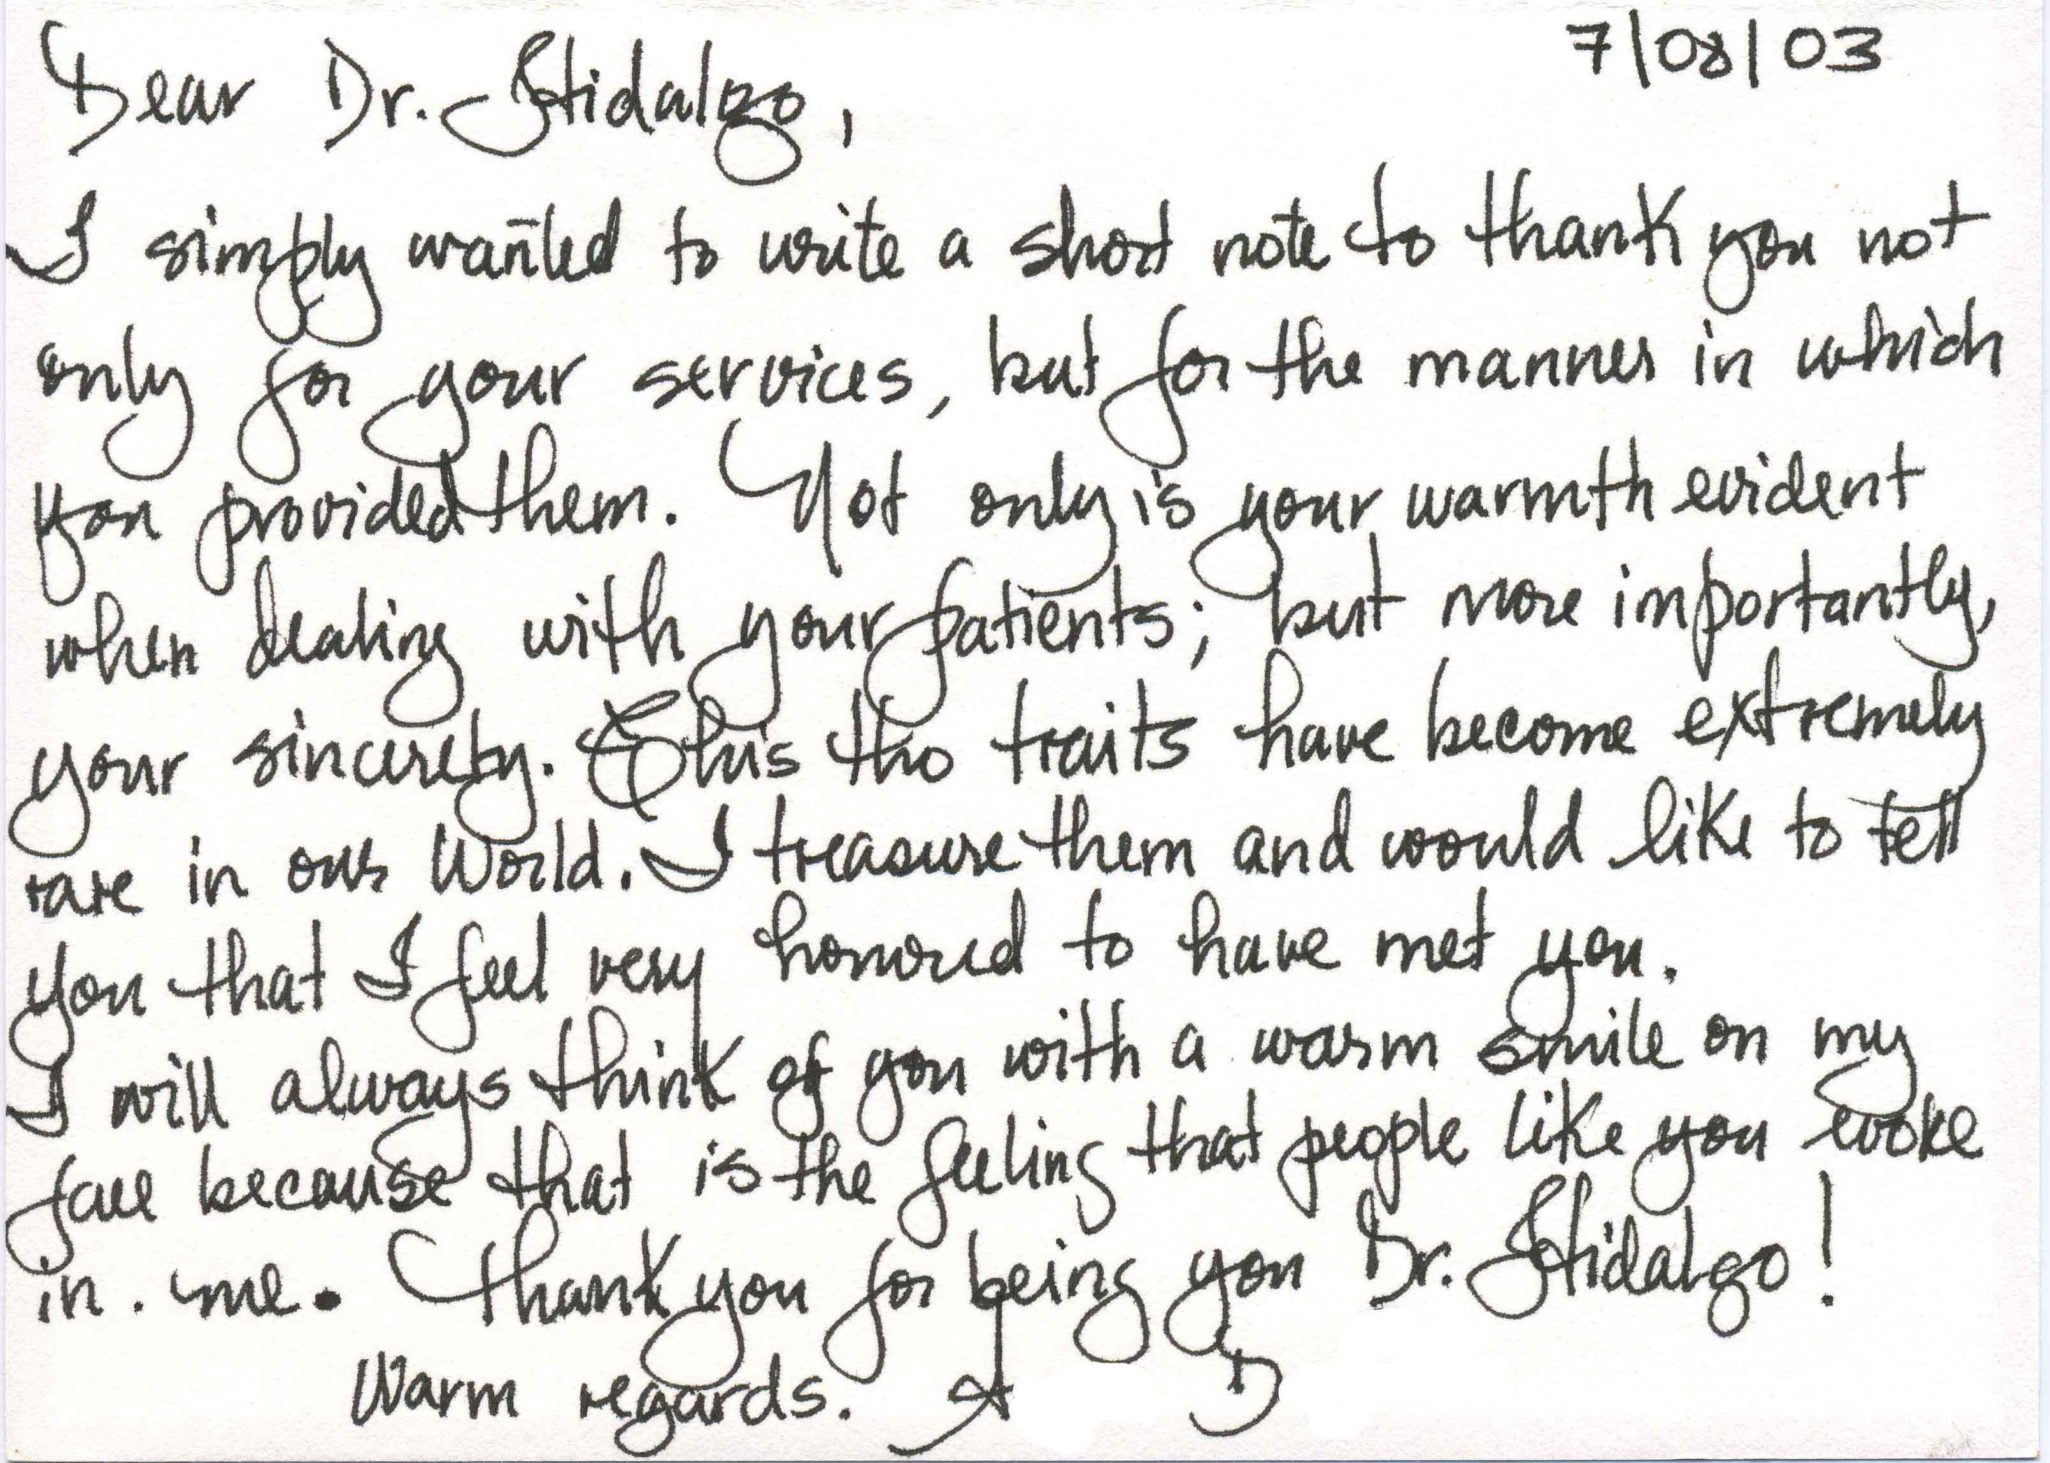 7/08/03
Dear Dr. Hidalgo,
I simply wanted to write a short note to thank you not
only for your services, but for the manner in which
you provided them. Not only is your warmth evident
when dealing with your patients; but more importantly,
your sincerety. This tho traits have become extremely
rare in our World. I treasure them and would like to tell
you that I feel very honored to have met you.
I will always think of you with a warm smile on my
face because that is the feeling that people like you evoke
in me. Thank you for being you Dr. Hidalgo!
Warm regards. A D